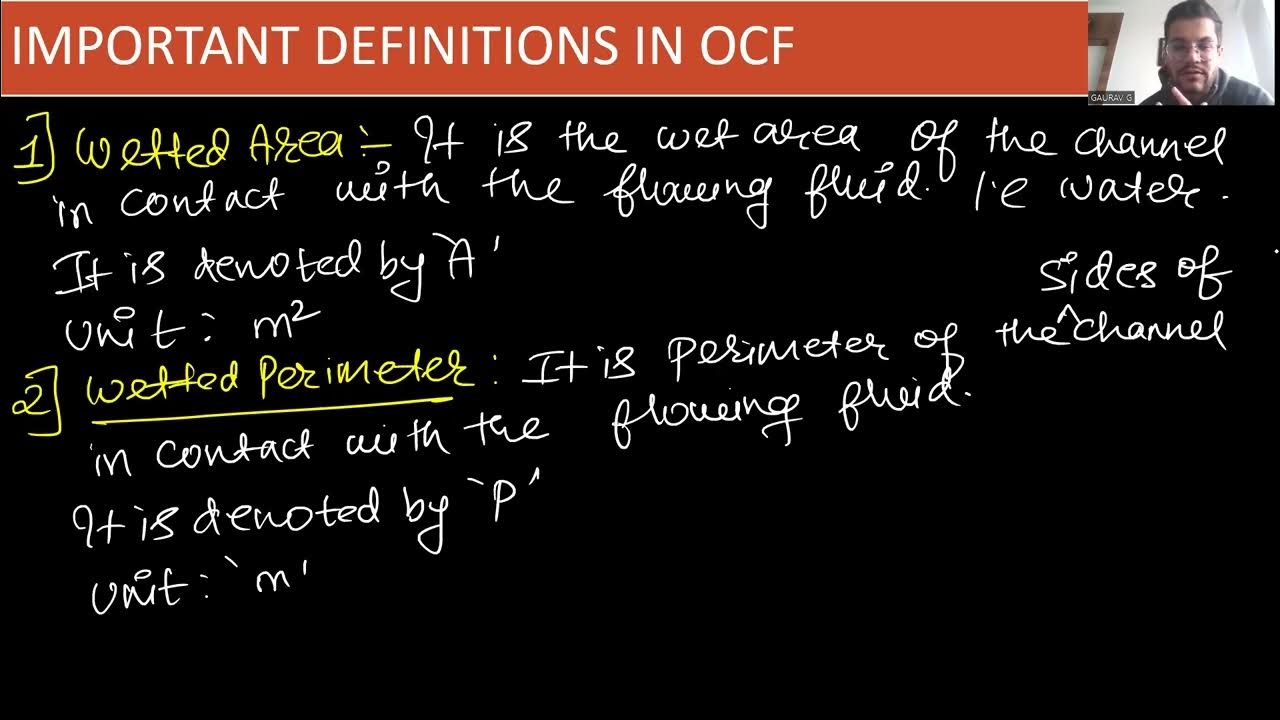 IMPORTANT DEFINITIONS IN OCF
GAURAV G
1] Wetted Area :- It is the wet area of the channel
in contact with the flowing fluid. i.e water.
It is denoted by `A'
Unit : m²
2] Wetted Perimeter : It is perimeter of the ^ sides of channel
in contact with the flowing fluid.
It is denoted by `P'
Unit : `m'